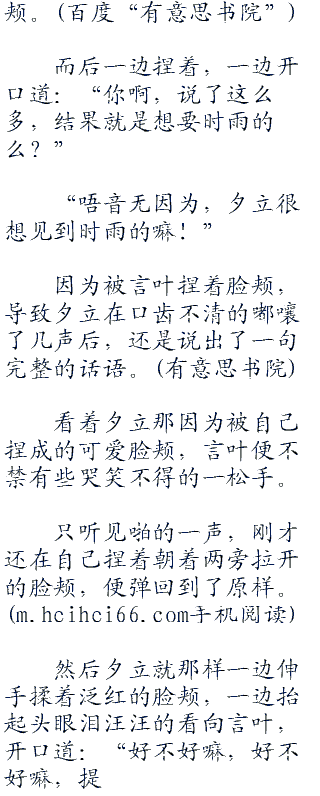 颊。(百度“有意思书院”)
而后一边捏着，一边开
口道：“你啊，说了这么
多，结果就是想要时雨的
么？”
“唔音无因为，夕立很
想见到时雨的嘛！”
因为被言叶捏着脸颊，
导致夕立在口齿不清的嘟嚷
了几声后，还是说出了一句
完整的话语。(有意思书院)
看着夕立那因为被自己
捏成的可爱脸颊，言叶便不
禁有些哭笑不得的一松手。
只听见啪的一声，刚才
还在自己捏着朝着两旁拉开
的脸颊，便弹回到了原样。
(m.hcihci66.com手机阅读)
然后夕立就那样一边伸
手揉着泛红的脸颊，一边抬
起头眼泪汪汪的看向言叶，
开口道：“好不好嘛，好不
好嘛，提